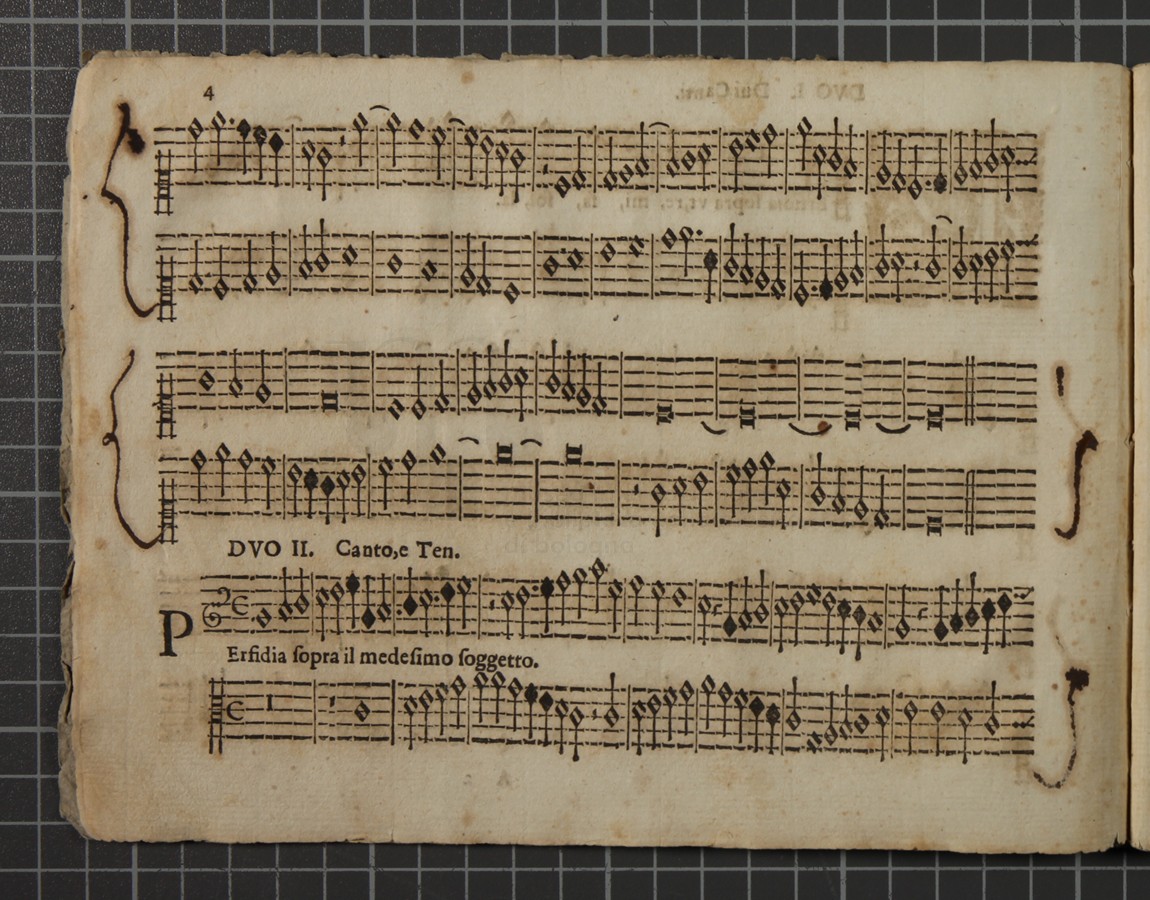 4
DVO II. Canto,e Ten.
PErfidia ſopra il medeſimo ſoggetto.